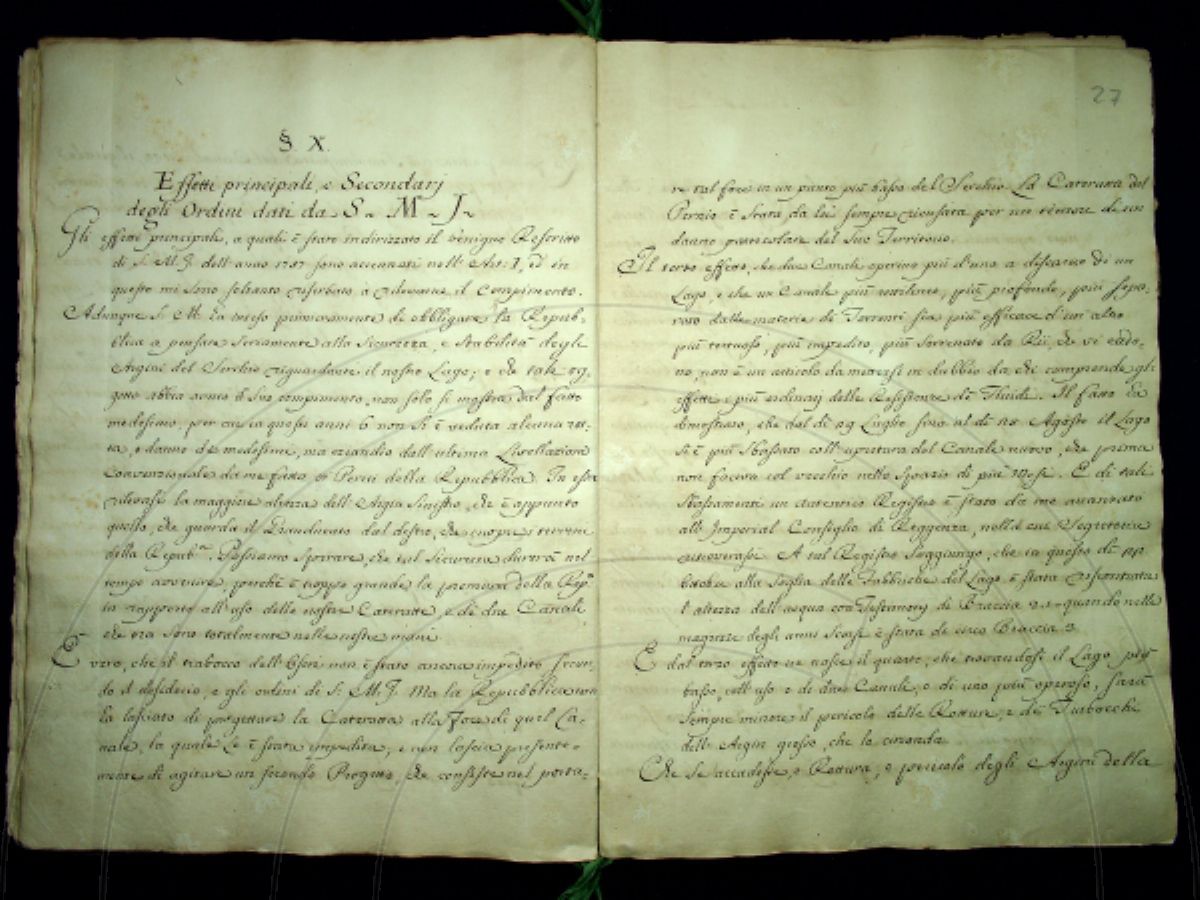 §. X.
Effetti principali, e Secondarj
degli Ordini dati da S. M. I.
Gli effetti principali, a quali è stato indirizzato il benigno Rescritto
di S. M. I. dell' anno 1757 sono accennati nell' Art. I, ed in
questo mi sono soltanto riserbato a ridurne il Compimento.
Adunque S. M. ha inteso primieramente di obbligare la Repub-
blica a pensare seriamente alla Sicurezza e Stabilità degli
Argini del Serchio riguardante il nostro Lago; e che tale og-
getto abbia avuto il Suo compimento, non solo si mostra dal fatto
medesimo, per cui in questi anni 6 non si è veduta alcuna rot-
ta, o danno de medesimi, ma eziandio dall' ultima Livellazione
Convenzionale da me fatta co Periti della Repubblica. In essa
ritrovasi la maggiore altezza dell' Argin Sinistro, che è appunto
quello, che guarda il Granducato dal destro, che cuopre i terreni
della Repub.ca. Possiamo Sperare, che tal Sicurezza durerà nel
tempo avvenire, perchè è troppo grande la premura della Rep.ca
in rapporto all' uso delle nostre Cateratte, e di due Canali
che ora sono totalmente nelle nostre mani.
È vero, che il trabocco dell' Ozeri non è stato ancora impedito secon-
do il desiderio, e gli ordini di S. M. I. Ma la Repubblica non
ha lasciato di progettare la Cateratta alla Foce di quel Ca-
nale, la quale le è stata impedita; e non lascia presente-
mente di agitare un secondo Progetto, che consiste nel porta-
27
re tal foce in un punto più basso del Serchio. La Cateratta del
Pernio è stata da lei sempre ricusata per un timore di un
danno particolare del Suo Territorio.
Il terzo effetto, che due Canali operino più d'uno a discarico di un
Lago, e che un Canale più rettilineo, più profondo, più sepa-
rato dalle materie di Torrenti sia più efficace d'un altro
più tortuoso, più impedito, più serrato da Rii, che vi cado-
no, non è un articolo da mettersi in dubbio da chi comprende gli
effetti i più ordinarj delle Resistenze de Fluidi. Il fatto ha
dimostrato, che dal dì 29 Luglio sino al dì 20 Agosto il Lago
si è più sbassato coll' apertura del Canale nuovo, che prima
non faceva col vecchio nello Spazio di più Mesi. E di tali
Sbassamenti un autentico Registro è stato da me avanzato
all' Imperial Consiglio di Reggenza, nella cui Segreteria
ritroverassi. A tal Registro Soggiungo, che in questo dì
Ottobre alla Soglia delle Fabbriche del Lago è stata riscontrata
l' altezza dell' acqua con Testimonj di Braccia 2.1 quando nelle
magrezze degli anni Scorsi è stata di circa Braccia 3
E dal terzo effetto ne nasce il quarto, che trovandosi il Lago più
basso, coll' uso e di due Canali, e di uno più operoso, sarà
sempre minore il pericolo delle Rotture, e de Trabocchi
dell' Argin grosso, che lo circonda.
Che Se accadesse, o Rottura, o pericolo degli Argini della